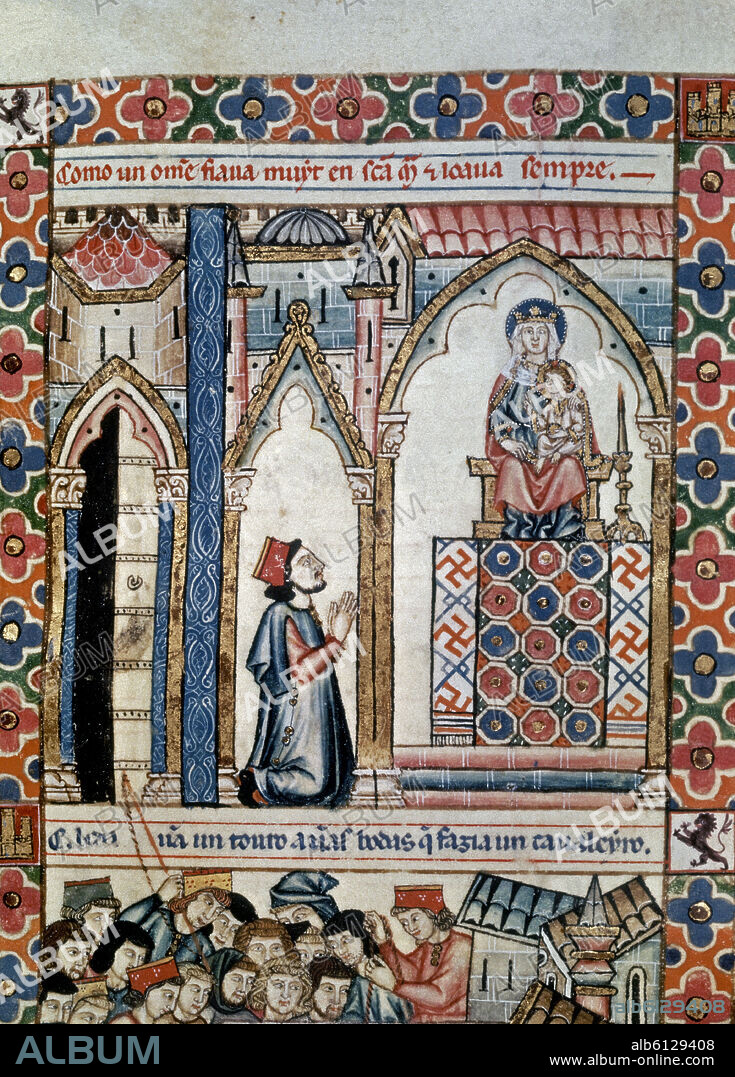 Como un ome fiava muyt en sc̄a m̄ & loava sempre.
un touro a un̄as bodas q̄ fazia un cavaleyro.
ALBUM
alb6129408
www.album-online.com